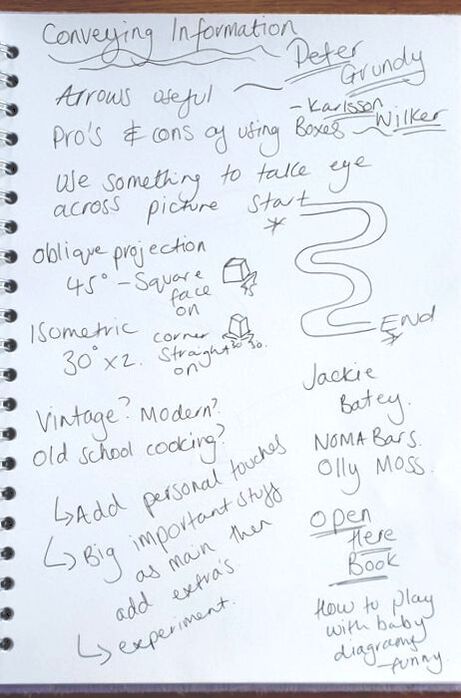 Conveying Information
Arrows useful — Peter
Grundy
Pro's & cons of using Boxes — Karlsson
Wilker
Use something to take eye
across picture Start
End
oblique projection
45° - Square
face
on
45
Isometric corner
30° x 2. Straight
on
30 30.
Vintage? Modern?
Old school cooking?
↳ Add personal touches
↳ Big important stuff
as main then
add extra's.
↳ experiment.
Jackie
Batey.
NOMA Bars.
Olly Moss.
Open
Here
Book
How to play
with baby
diagrams
- funny.